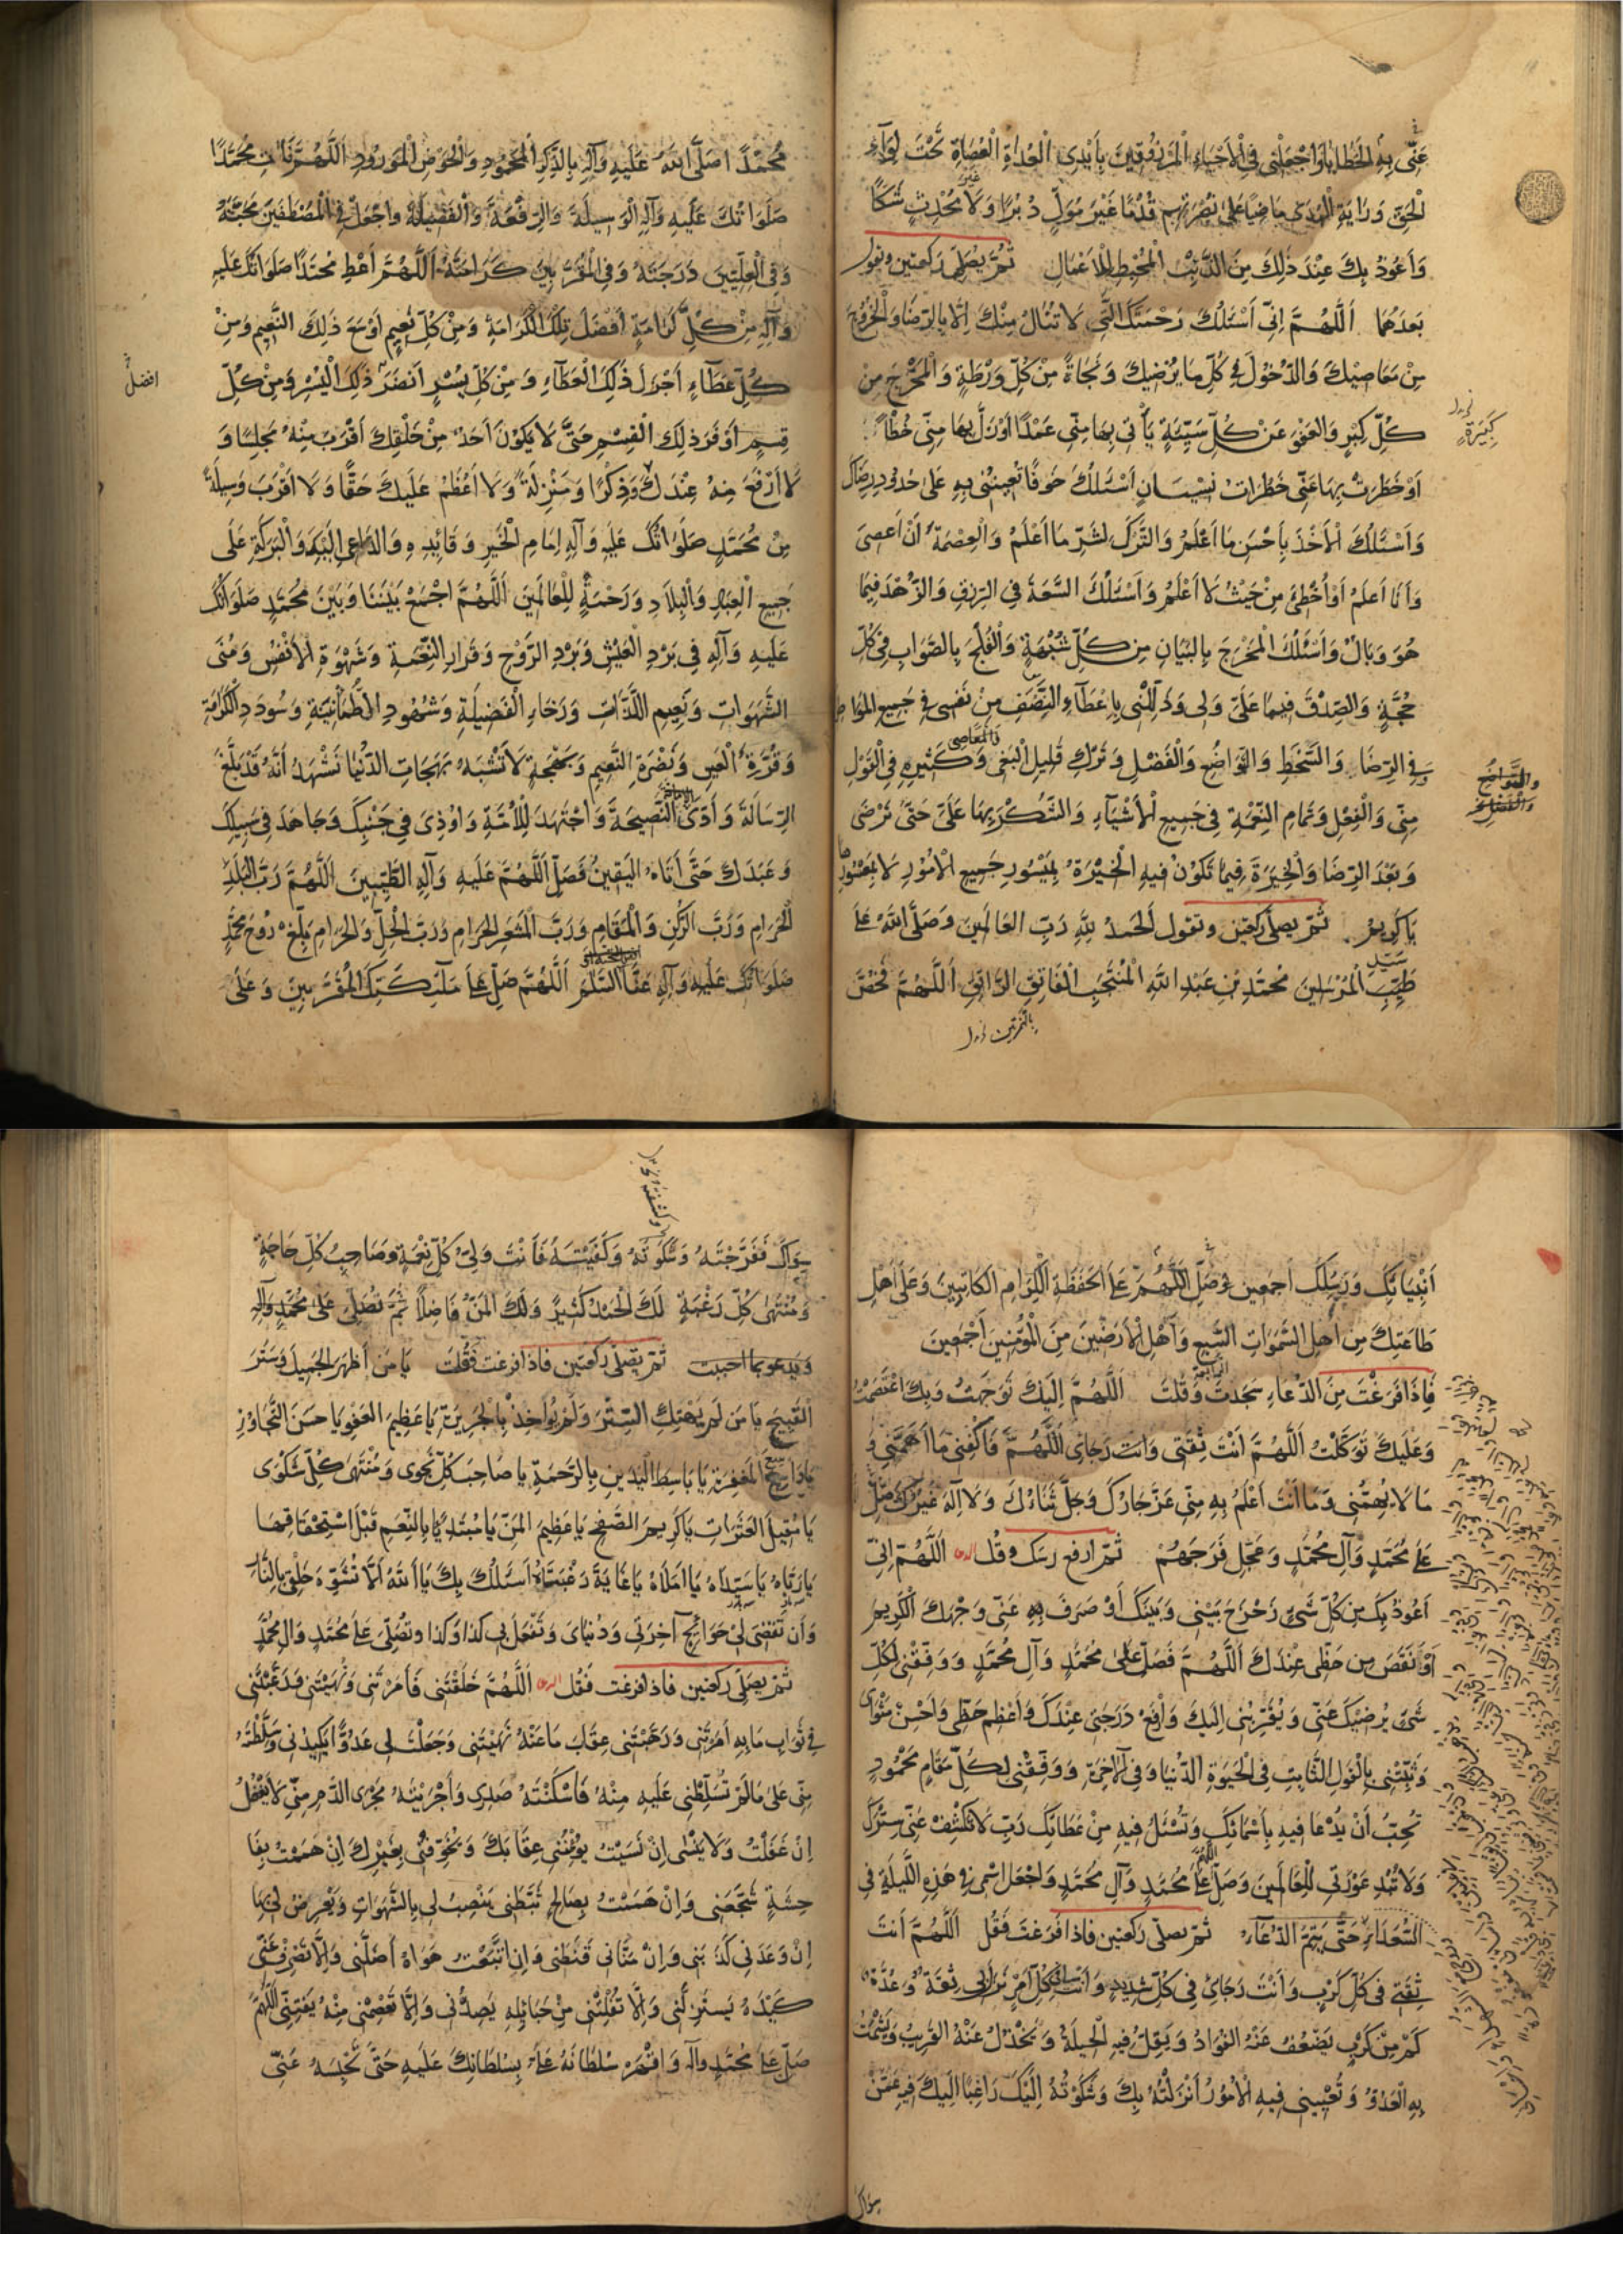 عَنّى بِهِ الْخَطَايَا وَاجْعَلْنى فِى الْأَحْيَاءِ الْمَرْزُوقينَ بِأَيْدِى الْعُدَاةِ الْعُصَاةِ تَحْتَ لِوَآءِ
الْحَقِّ وَرَايَةِ الْهُدَى مَاضِيًا عَلَى نُصْرَتِهِم قُدُمًا غَيْرَ مُوَلٍّ دُبُرًا وَلَا مُحْدِثٍ شَكًّا
وَأَعُوذُ بِكَ عِنْدَ ذَلِكَ مِنَ الذَّنْبِ الْمُحْبِطِ لِلْأَعْمَالِ ثُمَّ يُصَلِّى رَكعتين وتقول
بَعدَهُمَا اَللّٰهُمَّ اِنّى اَسْئَلُكَ رَحْمَتَكَ الَّتى لَا تُنَالُ مِنْكَ اِلَّا بِالرِّضَا وَالْخُرُوجِ
مِنْ مَعَاصِيكَ وَالدُّخُولَ فى كُلِّ مَا يُرْضِيكَ وَنَجَاةً مِنْ كُلِّ وَرْطَةٍ وَالْمَخْرَجَ مِن
كُلِّ كِبَرٍ وَالعَفْوَ عَنْ كُلِّ سَيِّئَةٍ يَأْتى بِهَا مِنّى عَمْدًا اَوْ زَلَّ بِهَا مِنّى خَطَأً
اَوْ خَطَرَتْ بِهَا عَنّى خَطَرَاتُ نِسْيَانٍ اَسْئَلُكَ خَوفًا تُعِينُنى بِهِ عَلى حُدُودِ رِضَاكَ
وَاَسْئَلُكَ الْأَخْذَ بِأَحْسَنِ مَا اَعْلَمُ وَالتَّرْكَ لِشَرِّ مَا اَعْلَمُ وَالْعِصْمَةَ اَنْ اَعصِىَ
وَاَنَا اَعلَمُ اَوْ اُخْطِئَ مِنْ حَيْثُ لَا اَعْلَمُ وَاَسْئَلُكَ السَّعَةَ فِى الرِّزقِ وَالزُّهْدَ فِيمَا
هُوَ وَبَالٌ وَاَسْئَلُكَ الْمَخْرَجَ بِالبَيَانِ مِن كُلِّ شُبْهَةٍ وَالْفَلْجَ بِالصَّوَابِ فِى كُلِّ
حُجَّةٍ وَالصِّدْقَ فِيمَا عَلَىَّ وَلى وَذَلِّلْنى بِاِعْطَاءِ النَّصَفِ مِنْ نَفسى فى جَميعِ المَوَاطِنِ
فِى الرِّضَا وَالسَّخَطِ وَالتَّوَاضُعِ وَالْفَضْلِ وَتَرْكِ قَلِيلِ الْبَغْىِ وَكَثِيرِهِ فِى الْقَوْلِ
مِنّى وَالْفِعْلِ وَتَمَامِ النِّعْمَةِ فى جَمِيعِ الْأَشْيَآءِ وَالشُّكْرَ بِهَا عَلَىَّ حَتّٰى تَرْضٰى
وَبَعْدَ الرِّضَا وَالْخِيَرَةَ فِيمَا تَكُونُ فِيهِ الْخِيَرَةُ بِمَيْسُورِ جَمِيعِ الْأُمُورِ لَا بِمَعْسُورِهَا
يَا كَرِيمُ ثُمّ يصلّى ركعتين وتقول اَلْحَمدُ لِلّٰهِ رَبِّ العَالَمِينَ وَصَلَّى اللهُ عَلَى
طَيِّبِ الْمُرْسَلِينَ مُحَمَّدِ بْنِ عَبْدِ اللهِ الْمُنْتَجَبِ الْفَاتِقِ الرَّاتِقِ اَللّٰهُمَّ فَخُصَّ
كَبِيرَةٍ
مُحَمَّدًا صَلَّى اللهُ عَلَيْهِ وَآلِهِ بِالذِّكْرِ الْمَحْمُودِ وَالْحَوْضِ الْمَوْرُودِ اَللّٰهُمَّ آتِ مُحَمَّدًا
صَلَوَاتُكَ عَلَيهِ وَآلِهِ الْوَسِيلَةَ وَالرِّفْعَةَ وَالْفَضِيلَةَ وَاجْعَلْ فِى الْمُصْطَفَيْنَ مَحَبَّتَهُ
وَفِى الْعِلِّيّينَ دَرَجَتَهُ وَفِى الْمُقَرَّبِينَ كَرَامَتَهُ اَللّٰهُمَّ اَعْطِ مُحَمَّدًا صَلَوَاتُكَ عَلَيهِ
وَآلِهِ مِنْ كُلِّ كَرَامَةٍ اَفْضَلَ تِلْكَ الْكَرَامَةِ وَمِنْ كُلِّ نَعِيمٍ اَوْسَعَ ذَلِكَ النَّعِيمِ وَمِنْ
كُلِّ عَطَآءٍ اَجْزَلَ ذَلِكَ الْعَطَآءِ وَمِنْ كُلِّ يُسْرٍ اَنْضَرَ ذَلِكَ الْيُسْرِ وَمِنْ كُلِّ
قِسَمٍ اَوْفَرَ ذَلِكَ الْقِسْمِ حَتّٰى لَا يَكُونَ اَحَدٌ مِنْ خَلْقِكَ اَقْرَبَ مِنْهُ مَجْلِسًا وَ
لَا اَرْفَعَ مِنهُ عِنْدَكَ ذِكْرًا وَمَنْزِلَةً وَلَا اَعْظَمَ عَلَيكَ حَقًّا وَلَا اَقْرَبَ وَسِيلَةً
مِنْ مُحَمَّدٍ صَلَوَاتُكَ عَلَيهِ وَآلِهِ اِمَامِ الْخَيرِ وَقَائِدِهِ وَالدَّاعِى اِلَيْهِ وَالْبَرَكَةِ عَلَى
جَمِيعِ الْعِبَادِ وَالْبِلَادِ وَرَحْمَةٍ لِلْعَالَمِينَ اَللّٰهُمَّ اجْمَعْ بَيْنَنَا وَبَيْنَ مُحَمَّدٍ صَلَوَاتُكَ
عَلَيهِ وَآلِهِ فى بَرْدِ الْعَيْشِ وَبَرْدِ الرَّوْحِ وَقَرَارِ النِّعْمَةِ وَشَهْوَةِ الْأَنْفُسِ وَمُنَى
الشَّهَوَاتِ وَنَعِيمِ اللَّذَّاتِ وَرَخَاءِ الْفَضِيلَةِ وَشُهُودِ الطُّمَأْنِينَةِ وَسُودَدِ الْكَرَامَةِ
وَقُرَّةِ الْعَينِ وَنَضْرَةِ النَّعِيمِ وَبَهْجَةٍ لَا تُشْبِهُ بَهَجَاتِ الدُّنْيَا نَشْهَدُ اَنَّهُ قَدْ بَلَّغَ
الرِّسَالَةَ وَاَدَّى النَّصِيحَةَ وَاجْتَهَدَ لِلْأُمَّةِ وَاُوذِىَ فى جَنْبِكَ وَجَاهَدَ فى سَبِيلِكَ
وَعَبَدَكَ حَتّٰى اَتَاهُ الْيَقِينُ فَصَلِّ اَللّٰهُمَّ عَلَيهِ وَآلِهِ الطَّيِّبِينَ اَللّٰهُمَّ رَبَّ الْبَلَدِ
الْحَرَامِ وَرَبَّ الرُّكْنِ وَالْمَقَامِ وَرَبَّ الْمَشْعَرِ الْحَرَامِ وَرَبَّ الْحِلِّ وَالْحَرَامِ بَلِّغْ رُوحَ مُحَمَّدٍ
صَلَوَاتُكَ عَلَيهِ وَآلِهِ عَنَّا السَّلَامَ اَللّٰهُمَّ صَلِّ عَلَى مَلَآئِكَتِكَ الْمُقَرَّبِينَ وَعَلَى
افضل
اَنْبِيَائِكَ وَرُسُلِكَ اَجمَعِين وَصَلِّ اَللّٰهُمَّ عَلَى الْحَفَظَةِ الْكِرَامِ الْكَاتِبِينَ وَعَلَى اَهْلِ
طَاعَتِكَ مِن اَهلِ السَّمٰوَاتِ السَّبعِ وَاَهْلِ الْأَرَضِينَ مِنَ الْمُؤْمِنِينَ اَجْمَعِينَ
فَاِذَا فَرَغْتَ مِنَ الدُّعَاءِ سَجَدتَ وَقُلْتَ اَللّٰهُمَّ اِلَيكَ تَوَجَّهتُ وَبِكَ اعْتَصَمْتُ
وَعَلَيكَ تَوَكَّلْتُ اَللّٰهُمَّ اَنْتَ ثِقَتى وَاَنتَ رَجَائى اَللّٰهُمَّ فَاكْفِنى مَا اَهَمَّنى وَ
مَا لَا يُهِمُّنى وَمَا اَنْتَ اَعْلَمُ بِهِ مِنّى عَزَّ جَارُكَ وَجَلَّ ثَنَاءُكَ وَلَا اِلٰهَ غَيْرُكَ صَلِّ
عَلَى مُحَمَّدٍ وَآلِ مُحَمَّدٍ وَعَجِّلْ فَرَجَهُمْ ثُمّ ارفع رَسَك وقُل اَللّٰهُمَّ اِنّى
اَعُوذُ بِكَ مِن كُلِّ شَىْءٍ زَحْزَحَ بَيْنى وَبَيْنَكَ اَوْ صَرَفَ بِهِ عَنّى وَجْهَكَ الْكَرِيمَ
اَوْ نَقَصَ مِن حَظّى عِنْدَكَ اَللّٰهُمَّ فَصَلِّ عَلٰى مُحَمَّدٍ وَآلِ مُحَمَّدٍ وَوَفِّقْنى لِكُلِّ
شَىْءٍ يُرْضِيكَ عَنّى وَيُقَرِّبُنى اِلَيكَ وَارْفَعْ دَرَجَتى عِنْدَكَ وَاَعْظِمْ حَظّى وَاَحْسِنْ مَثْوَاىَ
وَثَبِّتْنى بِالْقَولِ الثَّابِتِ فِى الْحَيٰوةِ الدُّنْيَا وَفِى الْآخِرَةِ وَوَفِّقْنى لِكُلِّ مَقَامٍ مَحْمُودٍ
تُحِبُّ اَنْ يُدْعَا فِيهِ بِاَسْمَائِكَ وَتُسْئَلُ فِيهِ مِنْ عَطَائِكَ رَبِّ لَا تَكْشِفْ عَنّى سِتْرَكَ
وَلَا تُبْدِ عَوْرَتى لِلْعَالَمِينَ وَصَلِّ عَلَى مُحَمَّدٍ وَآلِ مُحَمَّدٍ وَاجْعَل اسْمى فى هٰذِهِ اللَّيلَةِ فى
السُّعَدَاءِ حَتّٰى يَتِمَّ الدُّعَاءُ ثُمّ تصلّى ركعتين فاذا فَرَغتَ فَقُل اَللّٰهُمَّ اَنتَ
ثِقَتى فى كُلِّ كَرْبٍ وَاَنْتَ رَجَائى فى كُلِّ شَدِيدٍ وَاَنْتَ فى كُلِّ اَمْرٍ نَزَلَ بى ثِقَةٌ وَعُدَّةٌ
كَمْ مِنْ كَرْبٍ يَضْعُفُ عَنْهُ الفُؤَادُ وَيَقِلُّ فِيهِ الْحِيلَةُ وَيَخْذُلُ عَنْهُ القَرِيبُ وَيَشْمَتُ
بِهِ الْعَدُوُّ وَتُعْيِينى فِيهِ الْاُمُورُ اَنْزَلْتُهُ بِكَ وَشَكَوْتُهُ اِلَيْكَ رَاغِبًا اِلَيكَ فِيهِ عَمَّنْ
سواك
سِوَاكَ فَفَرَّجْتَهُ وَكَفَيْتَهُ فَاَنْتَ وَلِىُّ كُلِّ نِعْمَةٍ وَصَاحِبُ كُلِّ حَاجَةٍ
وَمُنْتَهٰى كُلِّ رَغْبَةٍ لَكَ الْحَمْدُ كَثِيرًا وَلَكَ الْمَنُّ فَاضِلًا ثُمَّ تُصَلّى عَلٰى مُحَمَّدٍ وَآلِهِ
وَيدعو بما احببت ثمّ يصلّى ركعتين فاذا فرغت فقُلتَ يَا مَن اَظهَرَ الجَمِيلَ وَسَتَرَ
الْقَبِيحَ يَا مَن لَمْ يَهْتِكِ السِّتْرَ وَلَمْ يُؤَاخِذْ بِالْجَرِيرَةِ يَا عَظِيمَ العَفْوِ يَا حَسَنَ التَّجَاوُزِ
يَا وَاسِعَ الْمَغْفِرَةِ يَا بَاسِطَ الْيَدَيْنِ بِالرَّحْمَةِ يَا صَاحِبَ كُلِّ نَجْوٰى وَمُنْتَهٰى كُلِّ شَكْوٰى
يَا مُقِيلَ الْعَثَرَاتِ يَا كَرِيمَ الصَّفْحِ يَا عَظِيمَ الْمَنِّ يَا مُبْتَدِئًا بِالنِّعَمِ قَبْلَ اسْتِحْقَاقِهَا
يَا رَبَّاهُ يَا سَيِّدَاهُ يَا اَمَلَاهُ يَا غَايَةَ رَغْبَتَاهُ اَسْئَلُكَ بِكَ يَا اَللهُ اَلَّا تُشَوِّهَ خَلْقى بِالنَّارِ
وَاَن تَقْضِىَ لى حَوَائِجَ آخِرَتى وَدُنْيَاىَ وَتَفْعَلَ بى كذا وَكذا وتُصَلِّىَ عَلَى مُحَمَّدٍ وَآلِ مُحَمَّدٍ
ثُمّ يصلّى ركعتين فاذا فرغت فَقُل اَللّٰهُمَّ خَلَقْتَنى فَاَمَرْتَنى وَنَهَيْتَنى وَرَغَّبْتَنى
فى ثَوَابِ مَا بِهِ اَمَرْتَنى وَرَهَّبْتَنى عِقَابَ مَا عَنْهُ نَهَيْتَنى وَجَعَلْتَ لى عَدُوًّا يَكِيدُنى وَسَلَّطْتَهُ
مِنّى عَلٰى مَا لَمْ تُسَلِّطْنى عَلَيهِ مِنْهُ فَاَسْكَنْتَهُ صَدْرى وَاَجْرَيْتَهُ مَجْرَى الدَّمِ مِنّى لَا يَغْفُلُ
اِنْ غَفَلْتُ وَلَا يَنْسٰى اِنْ نَسِيتُ يُؤْمِنُنى عِقَابَكَ وَيُخَوِّفُنى بِغَيْرِكَ اِنْ هَمَمْتُ بِفَا
حِشَةٍ شَجَّعَنى وَاِنْ هَمَمْتُ بِصَالِحٍ ثَبَّطَنى يَنْصِبُ لى بِالشَّهَوَاتِ وَيَعْرِضُ لى بِهَا
اِنْ وَعَدَنى كَذَبَنى وَاِنْ مَنَّانى قَنَّطَنى وَاِنِ اتَّبَعْتُ هَوَاهُ اَضَلَّنى وَاِلَّا تَصْرِفْ عَنّى
كَيْدَهُ يَسْتَزِلَّنى وَاِلَّا تُفْلِتْنى مِنْ حَبَائِلِهِ يَصُدُّنى وَاِلَّا تَعْصِمْنى مِنْهُ يَفْتِنّى اَللّٰهُمَّ
صَلِّ عَلَى مُحَمَّدٍ وآلِهِ وَاقْهَرْ سُلْطَانَهُ عَلَىَّ بِسُلْطَانِكَ عَلَيهِ حَتّٰى تَحْبِسَهُ عَنّى